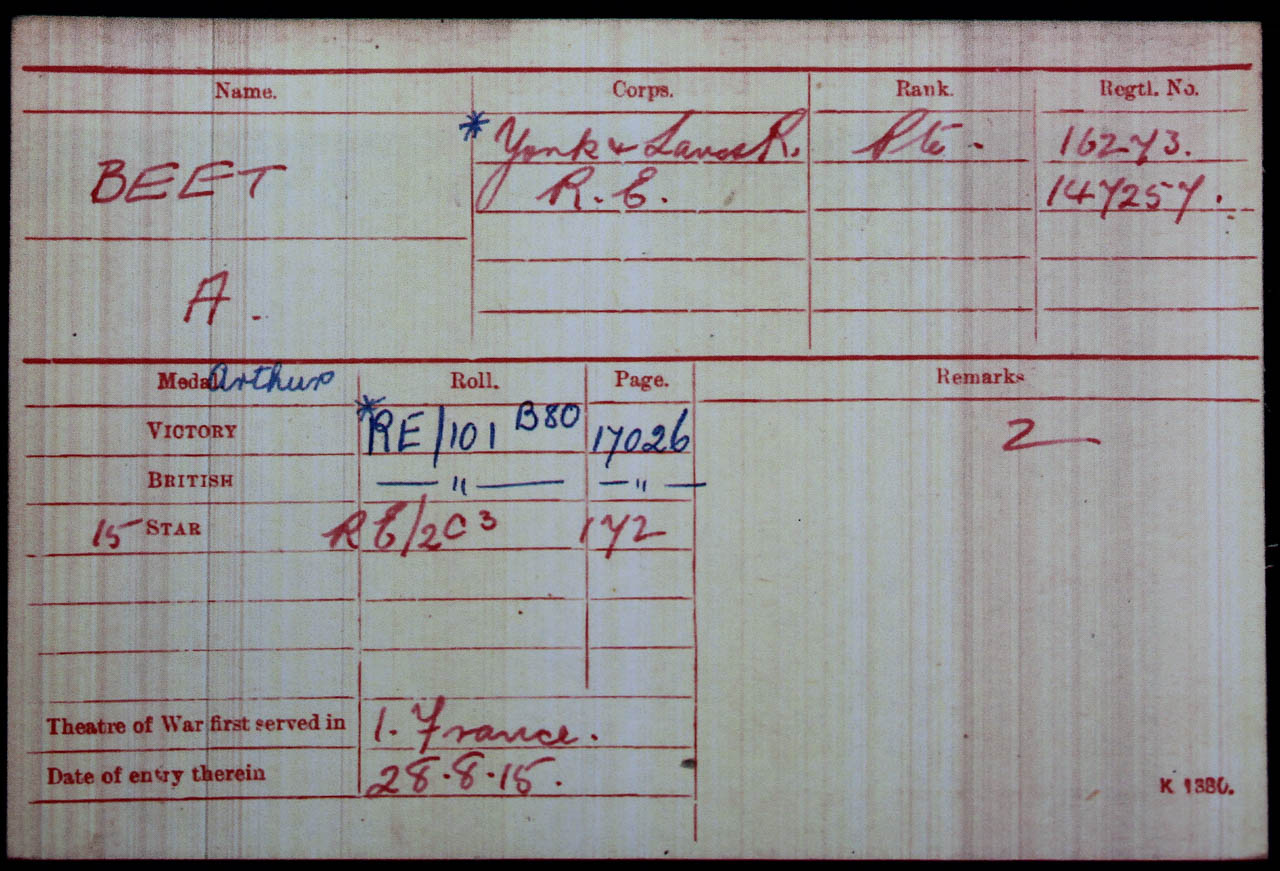 Name. Corps. Rank. Regtl. No.
* York & Lancs R. Pte. 16273.
BEET R.E. 147257.
A.
Medal Arthur Roll. Page. Remarks
VICTORY *RE/101 B80 17026 2
BRITISH — " — — " —
15 STAR RE/2C3 172
Theatre of War first served in 1. France.
Date of entry therein 28.8.15.
K 1380.